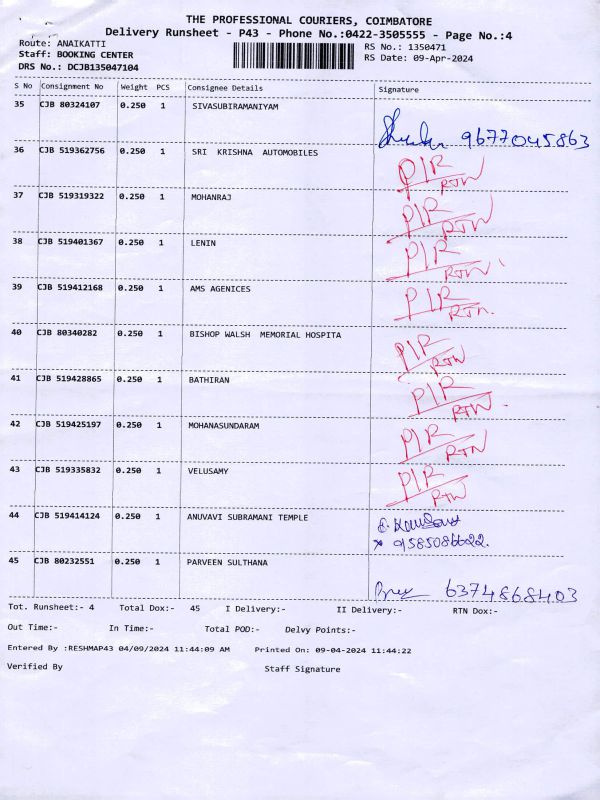 THE PROFESSIONAL COURIERS, COIMBATORE
Delivery Runsheet - P43 - Phone No.:0422-3505555 - Page No.:4
Route: ANAIKATTI
RS No.: 1350471
Staff: BOOKING CENTER
RS Date: 09-Apr-2024
DRS No.: DCJB135047104
S No Consignment No Weight PCS Consignee Details Signature
35 CJB 80324107 0.250 1 SIVASUBIRAMANIYAM
9677045863
36 CJB 519362756 0.250 1 SRI KRISHNA AUTOMOBILES
P/R
RTN
37 CJB 519319322 0.250 1 MOHANRAJ
P/R
RTN
38 CJB 519401367 0.250 1 LENIN
P/R
RTN
39 CJB 519412168 0.250 1 AMS AGENICES
P/R
RTn.
40 CJB 80340282 0.250 1 BISHOP WALSH MEMORIAL HOSPITA
P/R
RTN
41 CJB 519428865 0.250 1 BATHIRAN
P/R
RTN.
42 CJB 519425197 0.250 1 MOHANASUNDARAM
P/R
RTN
43 CJB 519335832 0.250 1 VELUSAMY
P/R
RTN
44 CJB 519414124 0.250 1 ANUVAVI SUBRAMANI TEMPLE
45 CJB 80232551 0.250 1 PARVEEN SULTHANA
6374868403
Tot. Runsheet:- 4 Total Dox:- 45 I Delivery:- II Delivery:- RTN Dox:-
Out Time:- In Time:- Total POD:- Delvy Points:-
Entered By :RESHMAP43 04/09/2024 11:44:09 AM Printed On: 09-04-2024 11:44:22
Verified By Staff Signature